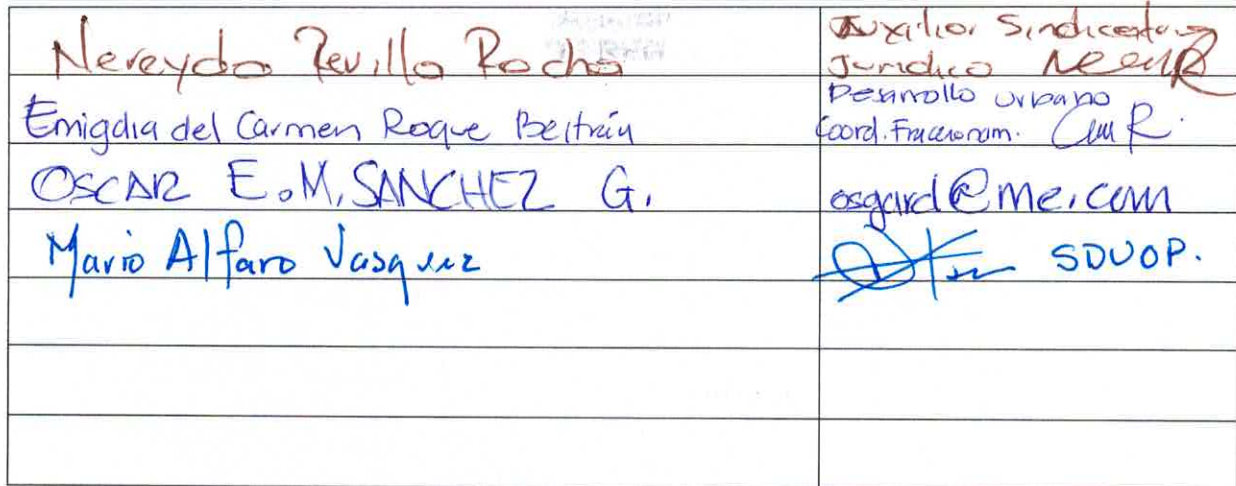 Nereyda Revilla Rocha
Auxilior Sindicatura
Juridico
Emigdia del Carmen Roque Beltrán
Desarrollo Urbano
Coord. Fraccionam.
OSCAR E.M. SANCHEZ G.
osgard@me.com
Mario Alfaro Vasquez
SDUOP.